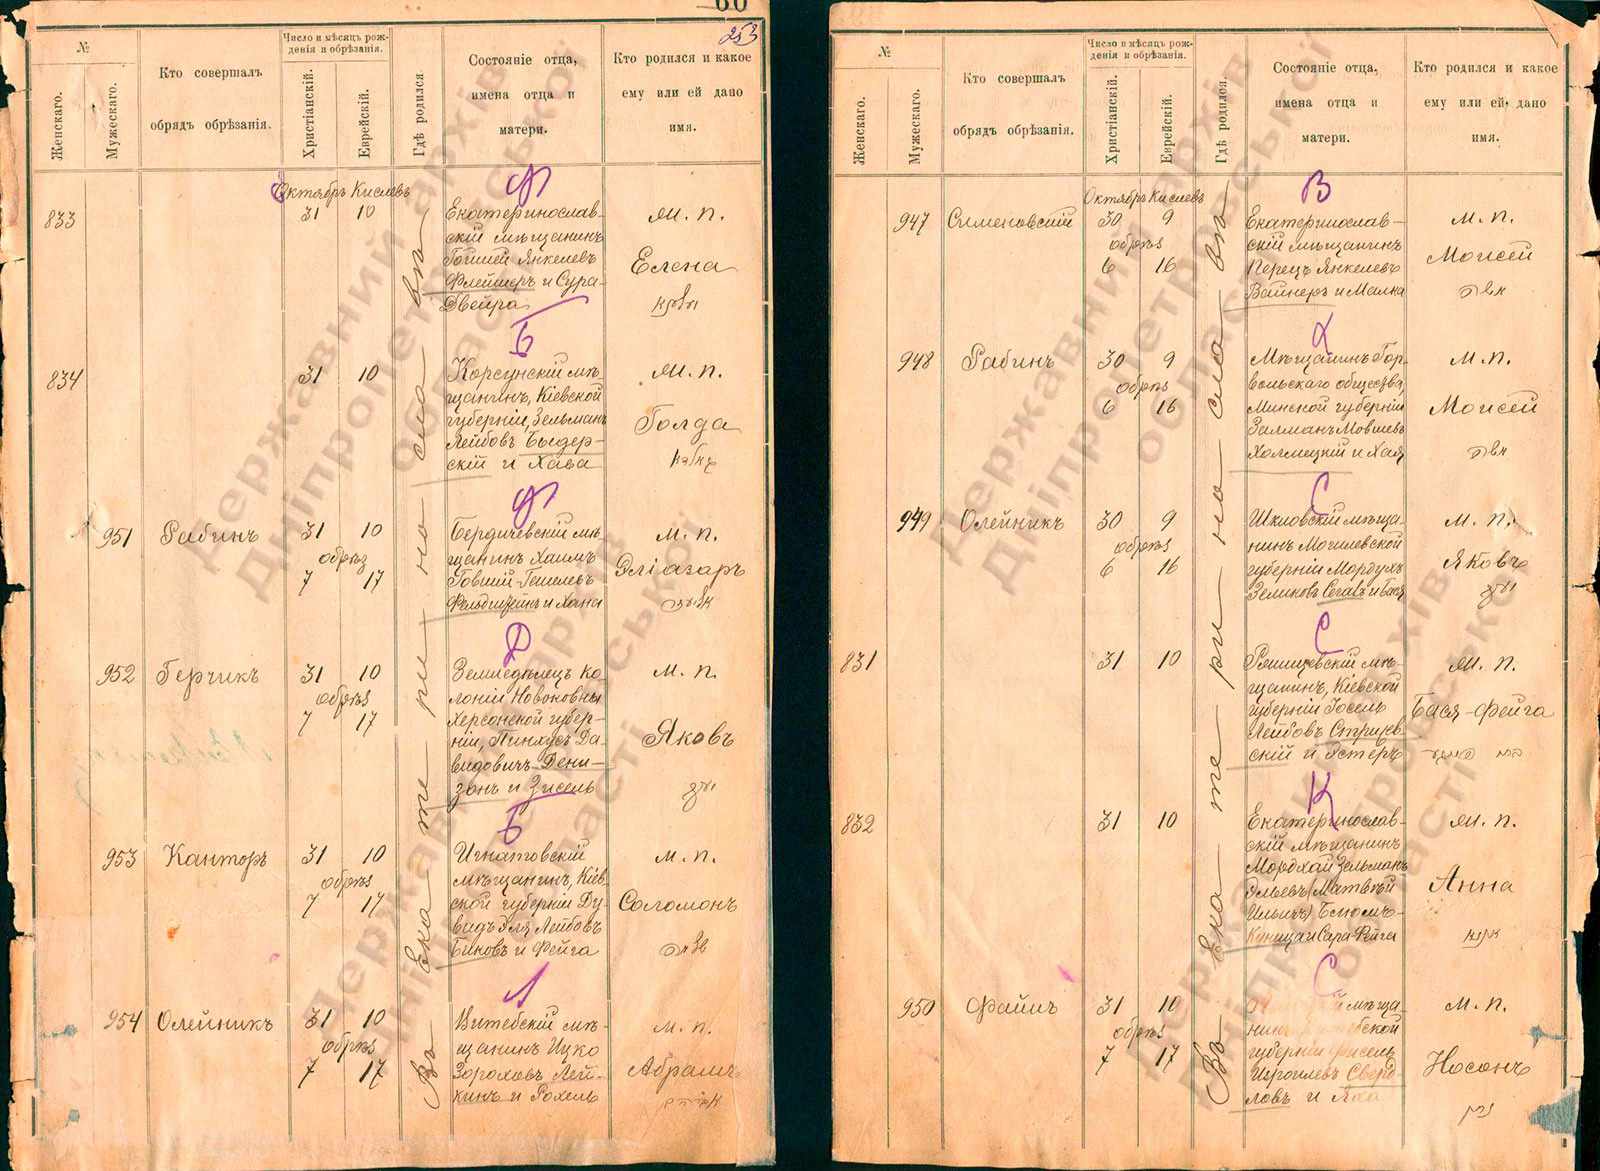 60
253
№
Женскаго.
Мужескаго.
Кто совершалъ
обрядъ обрѣзанія.
Число и мѣсяцъ рож-
денія и обрѣзанія.
Христіанскій.
Еврейскій.
Гдѣ родился.
Состояніе отца,
имена отца и
матери.
Кто родился и какое
ему или ей дано
имя.
Въ Екатеринославѣ
833
Октябрь Кислевъ
31 10
Ф
Екатеринослав-
скій мѣщанинъ
Янкелевъ
Флейшеръ и Сура-
Двейра
М. п.
Елена
834
31 10
Б
Корсунскій мѣ-
щанинъ, Кіевской
губерніи, Зельманъ
Лейбовъ Быдер-
скій и Хава
М. п.
Голда
951 Рабинъ
31 10
обрѣз
7 17
Ф
Бердичевскій мѣ-
щанинъ Хаимъ
Говшій-Гешелевъ
и Хана
м. п.
Эліазаръ
952 Герчикъ
31 10
обрѣз
7 17
Д
Земледѣлецъ ко
лоніи Новоковны
Херсонской губер-
ніи, Пинхусъ Да-
видовичъ Дени-
зонъ и Зисель
м. п.
Яковъ
953 Канторъ
31 10
обрѣз
7 17
Б
Игнатовскій
мѣщанинъ, Кіев-
ской губерніи Ду-
видъ Эля Лейбовъ
Биковъ и Фейга
м. п.
Соломонъ
954 Олейникъ
31 10
обрѣз
7 17
Л
Витебскій мѣ-
щанинъ Ицко
Зороховъ Лей-
кинъ и Рохель
м. п.
Абрамъ
№
Женскаго.
Мужескаго.
Кто совершалъ
обрядъ обрѣзанія.
Число и мѣсяцъ рож-
денія и обрѣзанія.
Христіанскій.
Еврейскій.
Гдѣ родился.
Состояніе отца,
имена отца и
матери.
Кто родился и какое
ему или ей дано
имя.
Въ Екатеринославѣ
947 Сименовскій
Октябрь Кислевъ
30 9
обрѣз
6 16
В
Екатеринослав-
скій мѣщанинъ
Перецъ Янкелевъ
Вайнеръ и Малка
м. п.
Моисей
משה
948 Рабинъ
30 9
обрѣз
6 16
Х
Мѣщанинъ Гор-
вольскаго общества,
Минской губерніи
Залманъ Мовшевъ
Холмецкій и Хая
м. п.
Моисей
משה
949 Олейникъ
30 9
обрѣз
6 16
С
Шкловскій мѣща-
нинъ Могилевской
губерніи Мордухъ
Зеликовъ Сегалъ и Бася
м. п.
Яковъ
831
31 10
С
мѣ-
щанинъ, Кіевской
губерніи Іосель
Лейбовъ
скій и Эстеръ
М. п.
Бася-Фейга
832
31 10
К
Екатеринослав-
скій мѣщанинъ
Мордхай Зельманъ
Эльевъ (Матвѣй
Ильичъ) Блюмъ-
Куница и Сара Фейга
М. п.
Анна
950 Файнъ
31 10
обрѣз
7 17
С
мѣща-
нинъ Витебской
губерніи Фисель
Изроилевъ Сверд-
ловъ и Яха
м. п.
Носонъ
נתן
Державний архів
Дніпропетровської
області